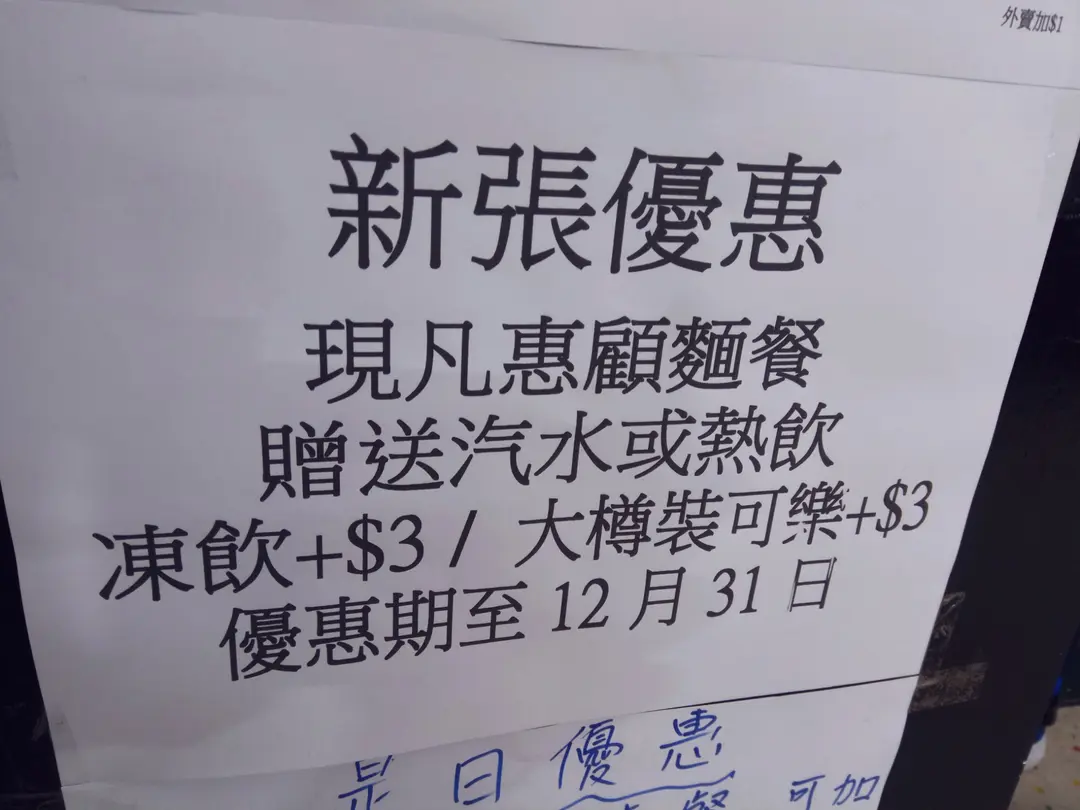 外賣加$1
新張優惠
現凡惠顧麵餐
贈送汽水或熱飲
凍飲+$3 / 大樽裝可樂+$3
優惠期至 12 月 31 日
是日優惠
餐 可加